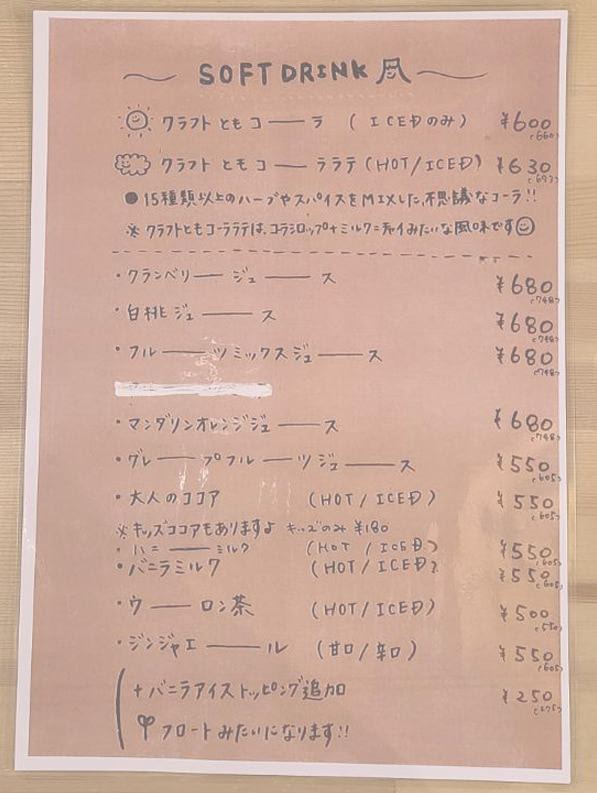 SOFT DRINK 風
クラフトともコーラ (ICEDのみ) ¥600 (660)
クラフトともコーララテ (HOT/ICED) ¥630 (693)
●15種類以上のハーブやスパイスをMIXした、不思議なコーラ!!
※クラフトともコーララテは、コーラシロップ+ミルク=チャイみたいな風味です
・クランベリージュース ¥680 (748)
・白桃ジュース ¥680 (748)
・フルーツミックスジュース ¥680 (748)
・マンダリンオレンジジュース ¥680 (748)
・グレープフルーツジュース ¥550 (605)
・大人のココア (HOT/ICED) ¥550 (605)
※キッズココアもありますよ キッズのみ ¥180
・ハニーミルク (HOT/ICED) ¥550 (605)
・バニラミルク (HOT/ICED) ¥550 (605)
・ウーロン茶 (HOT/ICED) ¥500 (550)
・ジンジャエール (甘口/辛口) ¥550 (605)
+バニラアイストッピング追加 ¥250 (275)
フロートみたいになります!!